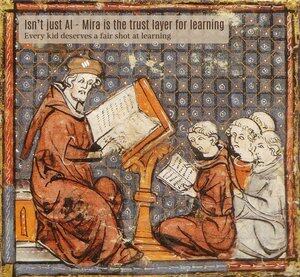 Isn't just AI - Mira is the trust layer for learning
Every kid deserves a fair shot at learning